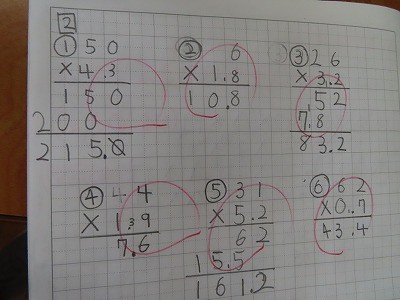 2
① 50
×4.3
150
200
215.0
② 6
×1.8
10.8
③ 26
×3.2
52
7.8
83.2
④ 4
×1.9
7.6
⑤ 31
×5.2
62
15.5
161.2
⑥ 62
×0.7
43.4